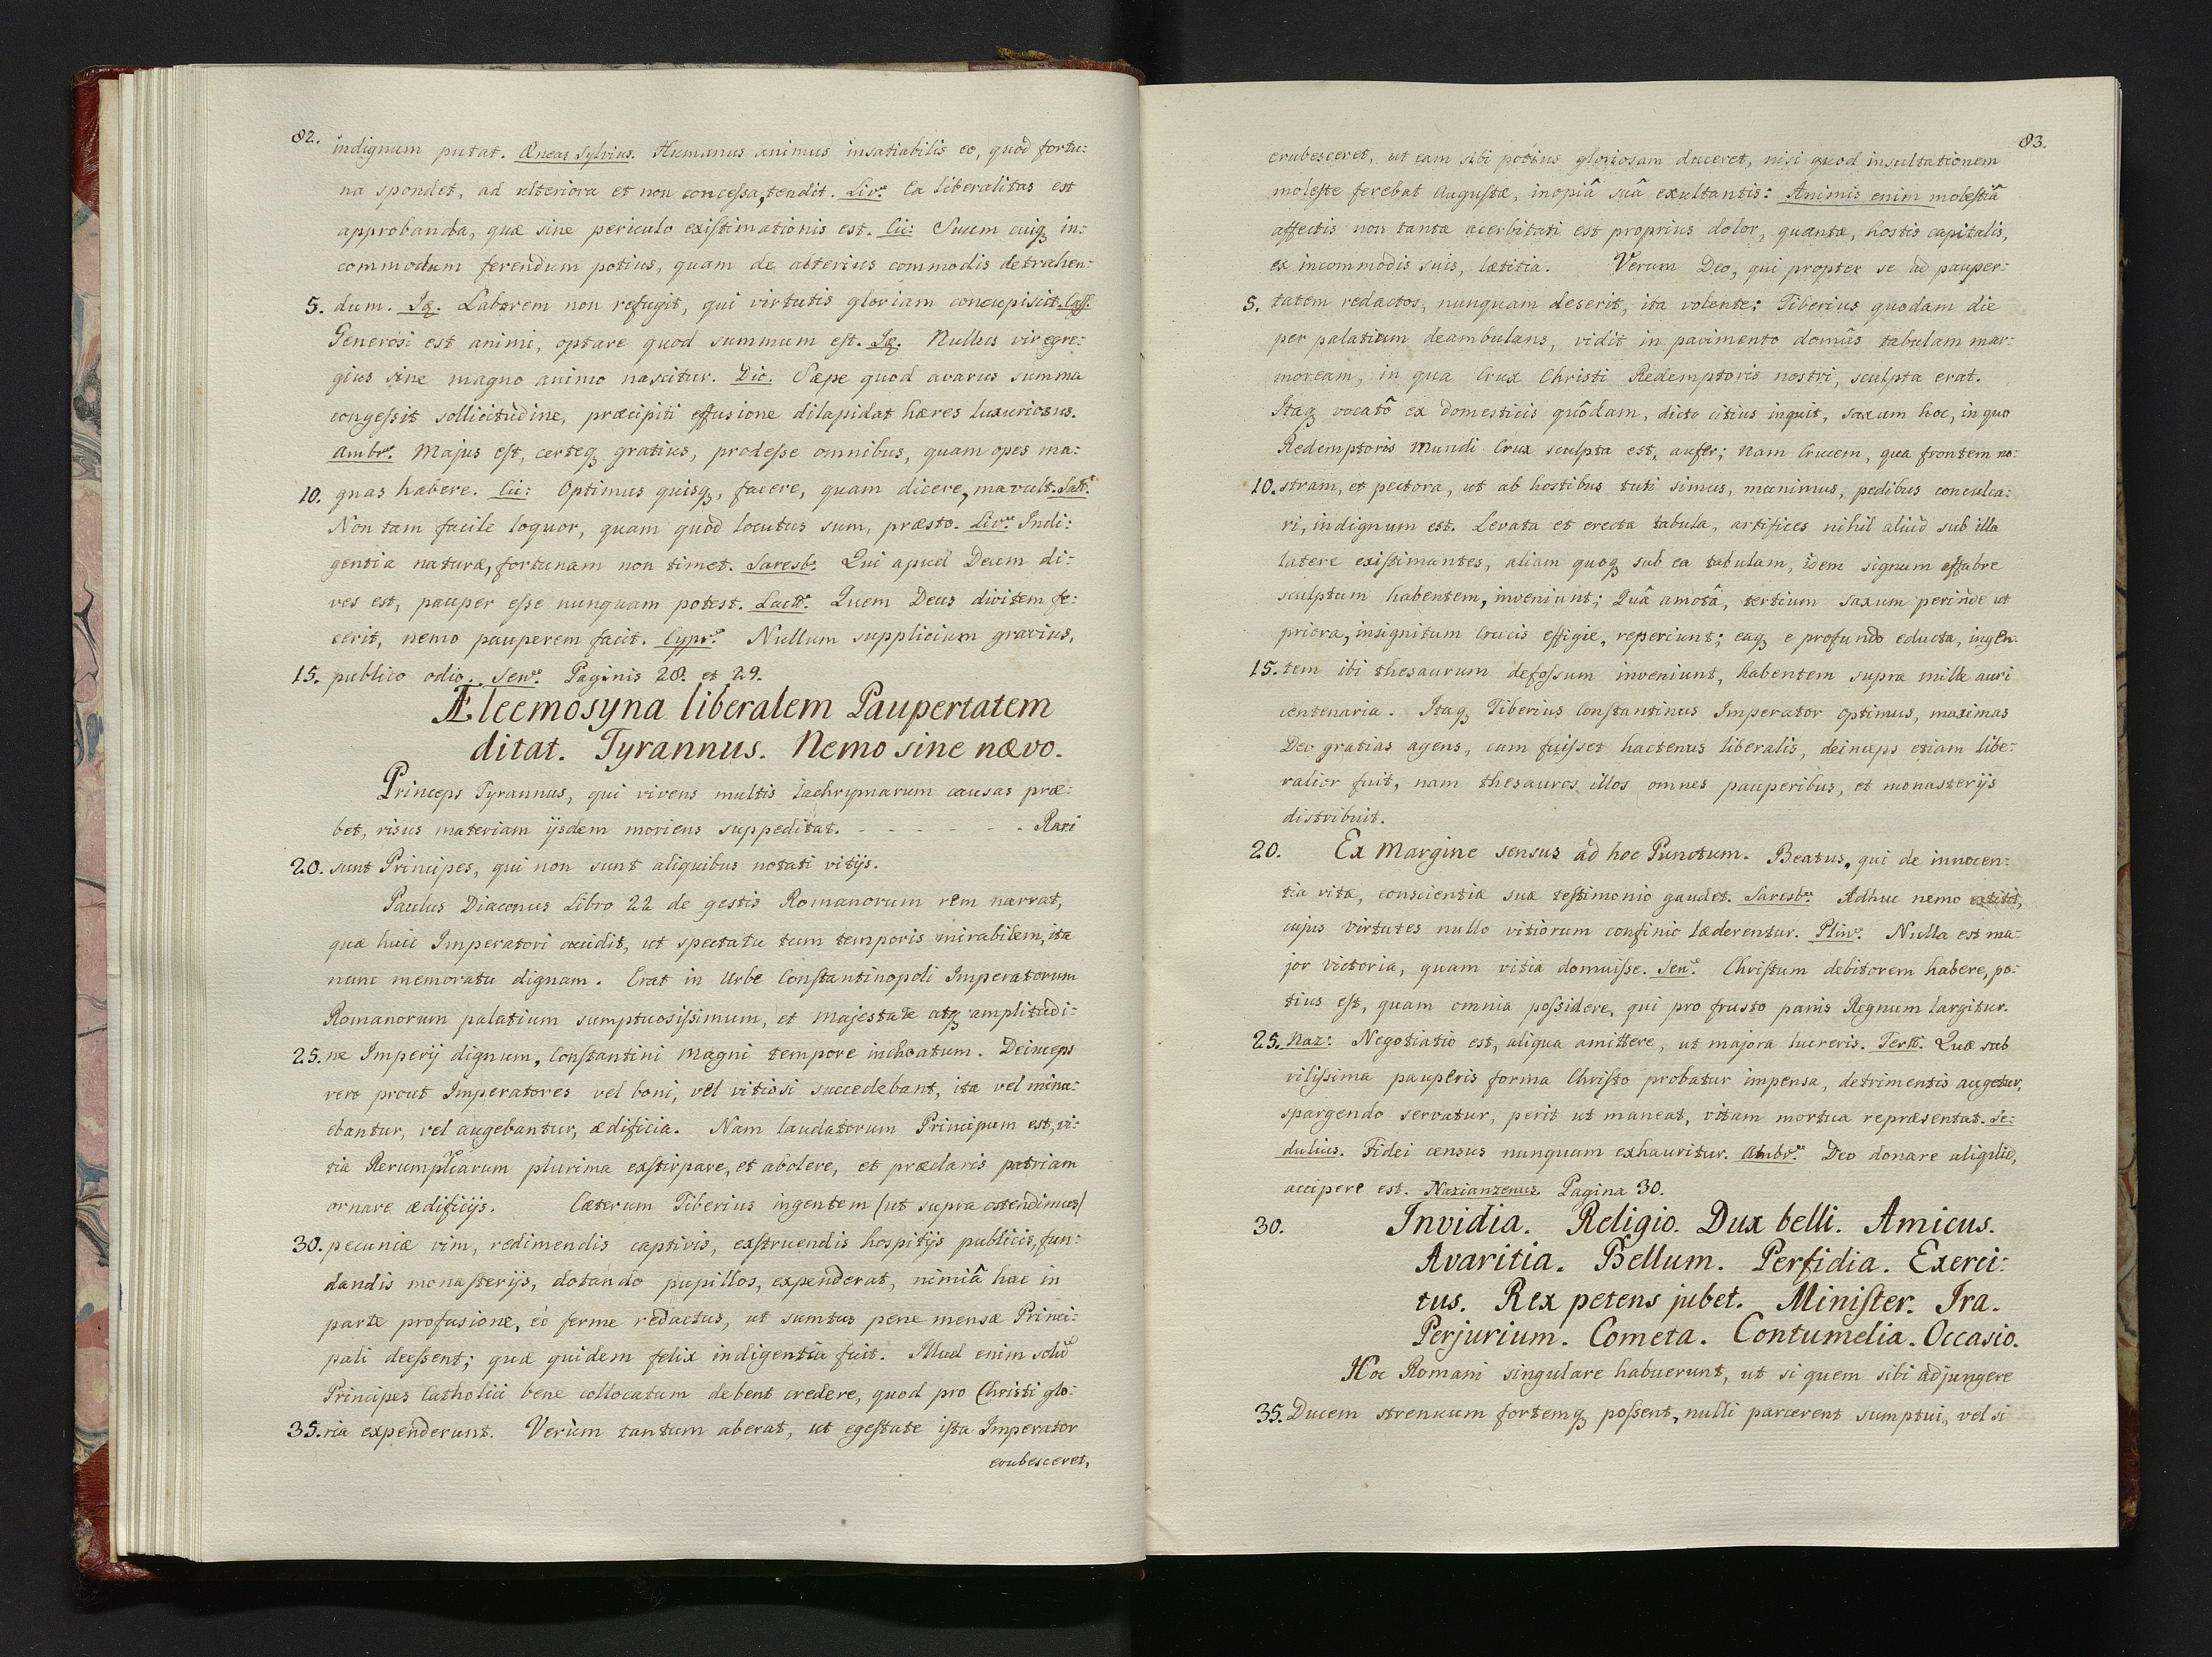 82. indignum putat. Æneas Sylvius. Humanus animus insatiabilis eo, quod fortu:
na spondet, ad ulteriora et non conceſsa, tendit. Liv.us Ea liberalitas est
approbanda, quæ sine periculo exiſtimationis est. Cic: Suum cuiq, in:
commodum ferendum potius, quam de alterius commodis detrahen:
5. dum. Iq. Laborem non refugit, qui virtutis gloriam concupiscit. Caſſ.
Generosi est animi, optare quod summum eſt. Iq. Nullus vir egre:
gius sine magno animo nascitur. Dic. Sæpe quod avarus summa
congeſsit sollicitudine, præcipiti effusione dilapidat hæres luxuriosus.
Ambr.s Majus eſt, certeq, gratius, prodeſse omnibus, quam opes ma:
10. gnas habere. Cic: Optimus quisq, facere, quam dicere, mavult. Sall.s
Non tam facile loquor, quam quod locutus sum, præsto. Liv.us Indi:
gentia naturæ, fortunam non timet. Saresb.s Qui apud Deum di:
ves est, pauper eſse nunquam potest. Lact.s Quem Deus divitem fe:
cerit, nemo pauperem facit. Cypr.s Nullum supplicium gravius,
15. publico odio. Sen.a Paginis 28. et 29.
Æleemosyna liberalem Paupertatem
ditat. Tyrannus. Nemo sine nævo.
Princeps Tyrannus, qui vivens multis lachrymarum causas præ:
bet, risus materiam ijsdem moriens suppeditat. - - - - - - - Rari
20. sunt Principes, qui non sunt aliquibus notati vitijs.
Paulus Diaconus Libro 22 de gestis Romanorum rem narrat,
quæ huic Imperatori accidit, ut spectatu tum temporis mirabilem, ita
nunc memoratu dignam. Erat in Urbe Conſtantinopoli Imperatorum
Romanorum palatium sumptuosiſsimum, et majestate atq, amplitudi:
25. ne Imperij dignum, Conſtantini Magni tempore inchoatum. Deinceps
vero prout Imperatores vel boni, vel vitiosi succedebant, ita vel minu:
ebantur, vel augebantur, ædificia. Nam laudatorum Principum est, vi:
tia Rerumplicarum plurima exſtirpare, et abolere, et præclaris patriam
ornare ædificijs. Cæterum Tiberius ingentem (ut supra ostendimus)
30. pecuniæ vim, redimendis captivis, exſtruendis hospitijs publicis, fun:
dandis monaſterijs, dotando pupillos, expenderat, nimiâ hac in
parte profusione, eò ferme redactus, ut sumtus pene mensæ Princi:
pali deeſsent; quæ quidem felix indigentia fuit. Illud enim solũ
Principes Catholici bene collocatum debent credere, quod pro Christi glo:
35. ria expenderunt. Verùm tantum aberat, ut egeſtate iſta Imperator
erubesceret,
83.
erubesceret, ut eam sibi potius gloriosam duceret, nisi quod insultationem
moleſte ferebat Auguſtæ, inopiâ suâ exultantis: Animis enim moleſtiâ
affectis non tantæ acerbitati est proprius dolor, quantæ, hostis capitalis,
ex incommodis suis, lætitia. Verum Deo, qui propter se ad pauper:
5. tatem redactos, nunquam deserit, ita volente; Tiberius quodam die
per palatium deambulans, vidit in pavimento domûs tabulam mar:
moream, in qua Crux Christi Redemptoris nostri, sculpta erat.
Itaq, vocatô ex domesticis quôdam, dicto citius inquit, saxum hoc, in quo
Redemptoris Mundi Crux sculpta est, aufer; nam Crucem, qua frontem no:
10. stram, et pectora, ut ab hostibus tuti simus, munimus, pedibus conculca:
ri, indignum est. Levata et erecta tabula, artifices nihil aliud sub illa
latere exiſtimantes, aliam quoq, sub ea tabulam, idem signum affabre
sculptum habentem, inveniunt; Quâ amotâ, tertium saxum perinde ut
priora, insignitum Crucis effigie, reperiunt; eaq, e profundo educta, ingen:
15. tem ibi thesaurum defoſsum inveniunt, habentem supra mille auri
centenaria. Itaq, Tiberius Conſtantinus Imperator optimus, maximas
Deo gratias agens, cum fuiſset hactenus liberalis, deinceps etiam libe:
ralior fuit, nam thesauros illos omnes pauperibus, et monasterijs
distribuit.
20. Ex Margine sensus ad hoc Punctum. Beatus, qui de innocen:
tia vitæ, conscientiæ suæ teſtimonio gaudet. Saresb.s Adhuc nemo extitit,
cujus virtutes nullo vitiorum confinio læderentur. Plin.s Nulla est ma:
jor victoria, quam vitia domuiſse. Sen.a Chriſtum debitorem habere, po:
tius eſt, quam omnia poſsidere, qui pro frusto panis Regnum largitur.
25. Naz: Negotiatio est, aliqua amittere, ut majora lucreris. Tertl. Quæ sub
viliſsima pauperis forma Chriſto probatur impensa, detrimentis augetur,
spargendo servatur, perit ut maneat, vitam mortua repræsentat. Se:
dulius. Fidei census nunquam exhauritur. Ambr.s Deo donare aliquid,
accipere est. Nazianzenus. Pagina 30.
30. Invidia. Religio. Dux belli. Amicus.
Avaritia. Bellum. Perfidia. Exerci:
tus. Rex petens jubet. Miniſter. Ira.
Perjurium. Cometa. Contumelia. Occasio.
Hoc Romani singulare habuerunt, ut si quem sibi adjungere
35. Ducem strenuum fortemq, poſsent, nulli parcerent sumptui, vel si